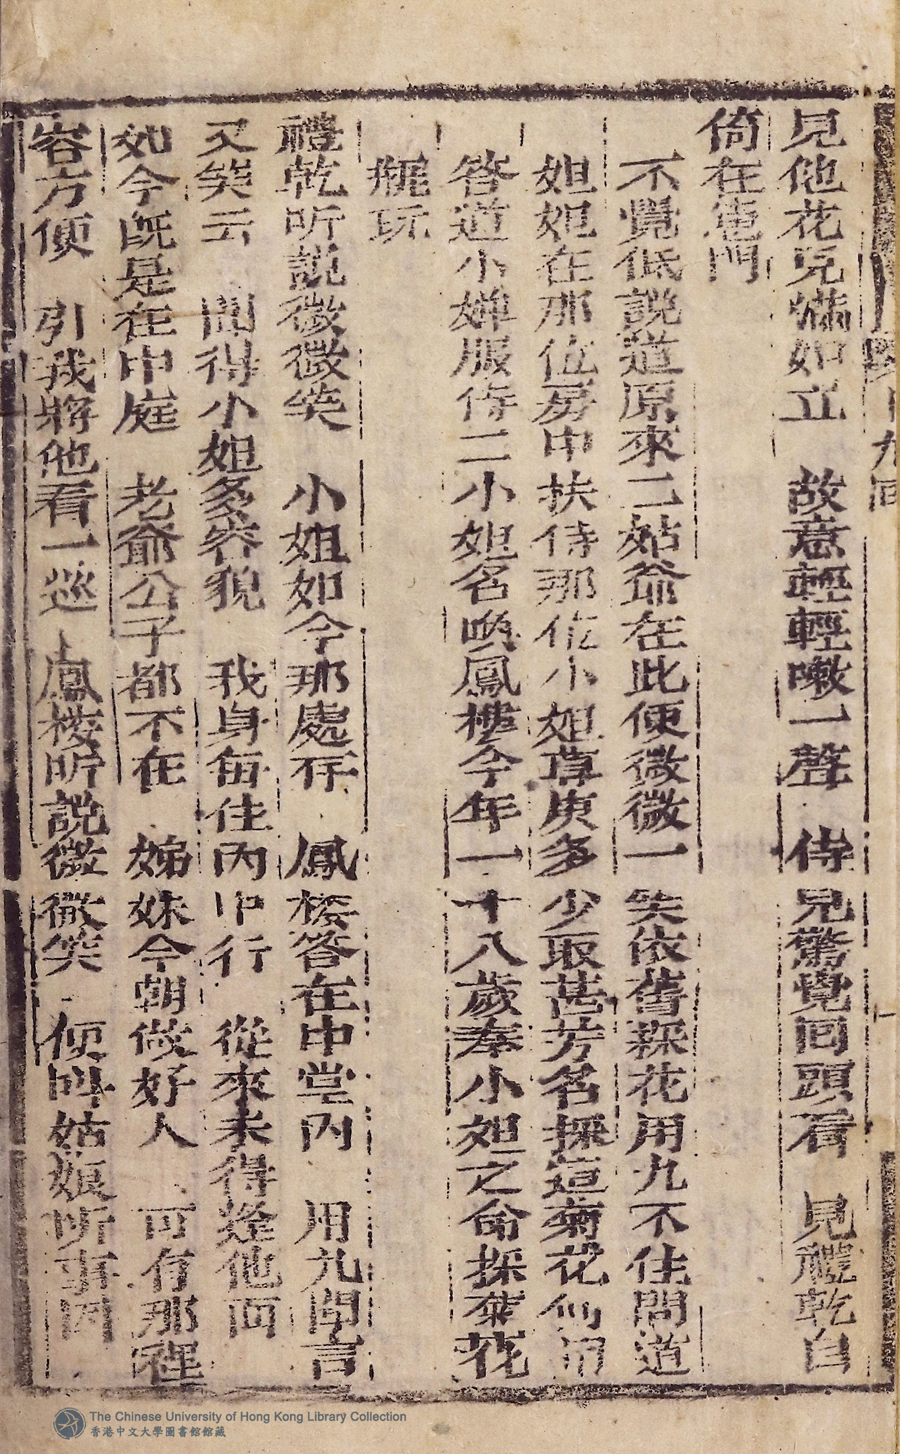 見他花兒燐如立　故意輕輕嗽一聲　侍兒驚覺回頭看　見禮乾自
倚在窓門
不覺低說道原來二姑爺在此便微微一笑依舊採花用九不住問道
妲妲在那位房中扶侍那位小妲尊庚多少取甚芳名採這菊花何用
答道小婢服侍二小妲名喚鳳樓今年一十八歲奉小妲之命採菊花
瓶玩
禮乾听說微微笑　小姐如今那處存　鳳楼答在中堂內　用九聞言
又笑云　聞得小妲多容貌　我身每住內中行　從來未得逢他面
如今既是在中庭　老爺公子都不在　姊妹今朝做好人　可有那裡
容方便　引我將他看一巡　鳳楼听説微微笑　便呌姑娘听事因
九回
The Chinese University of Hong Kong Library Collection
香港中文大學圖書館館藏